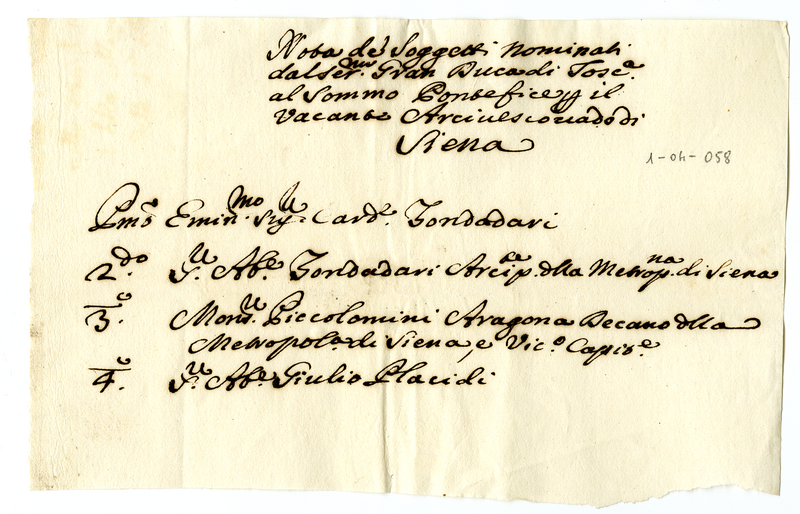 Nota de' Soggetti Nominati
dal Ser.mo Gran Duca di Tosc.a
al Sommo Pontefice p il
Vacante Arcivescovado di
Siena
1-04-058
Pmo Emin.mo Sig. Card. Zondadari
2.do S. Ab.e Zondadari Arcip. dlla Metrop.na di Siena
3.o Mons. Piccolomini Aragona Decano dlla
Metropol.a di Siena, e Vic.o Capit.e
4.o S. Ab.e Giulio Placidi